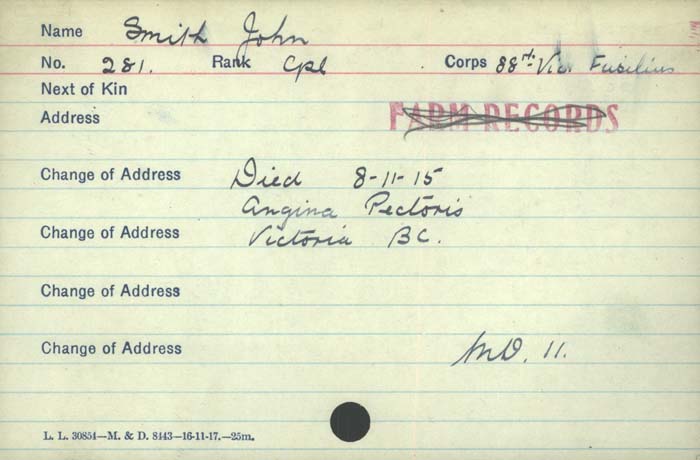 Name Smith John
No. 281. Rank Cpl Corps 88th Vic. Fusiliers
Next of Kin
Address FARM RECORDS
Change of Address Died 8-11-15
Angina Pectoris
Change of Address Victoria BC.
Change of Address
Change of Address M.D. 11.
L. L. 30854—M. & D. 8443—16-11-17.—25m.